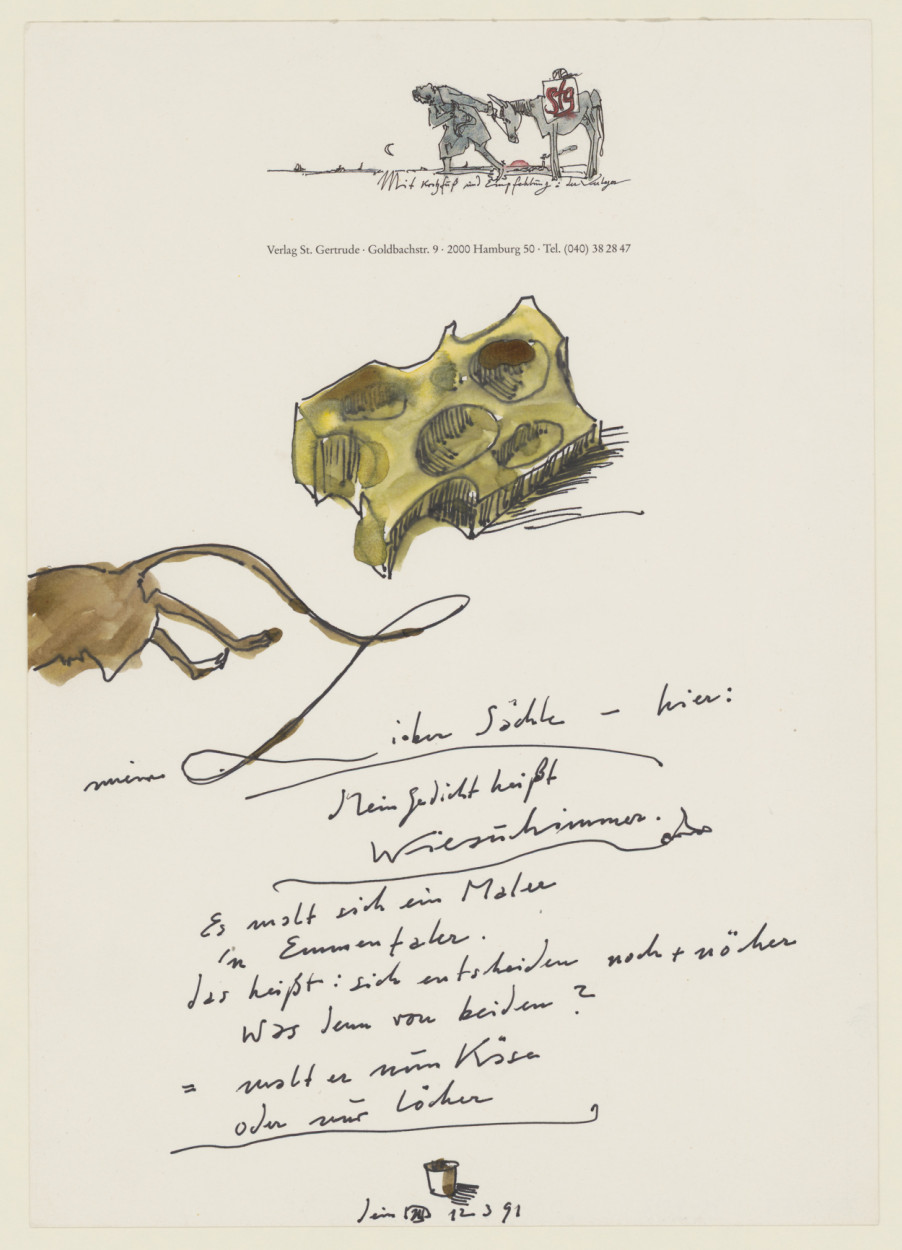 Stg
Mit Kratzfuß und Empfehlung: der Verleger
Verlag St. Gertrude · Goldbachstr. 9 · 2000 Hamburg 50 · Tel. (040) 38 28 47
mein Lieber Sächle – hier:
Mein Gedicht heißt
Wiesuhimmer.
Es malt sich ein Maler
'n Emmentaler.
das heißt: sich entscheiden noch + nöcher
Was denn von beiden?
= malt er nun Käse
oder nur Löcher
dein 12 3 91